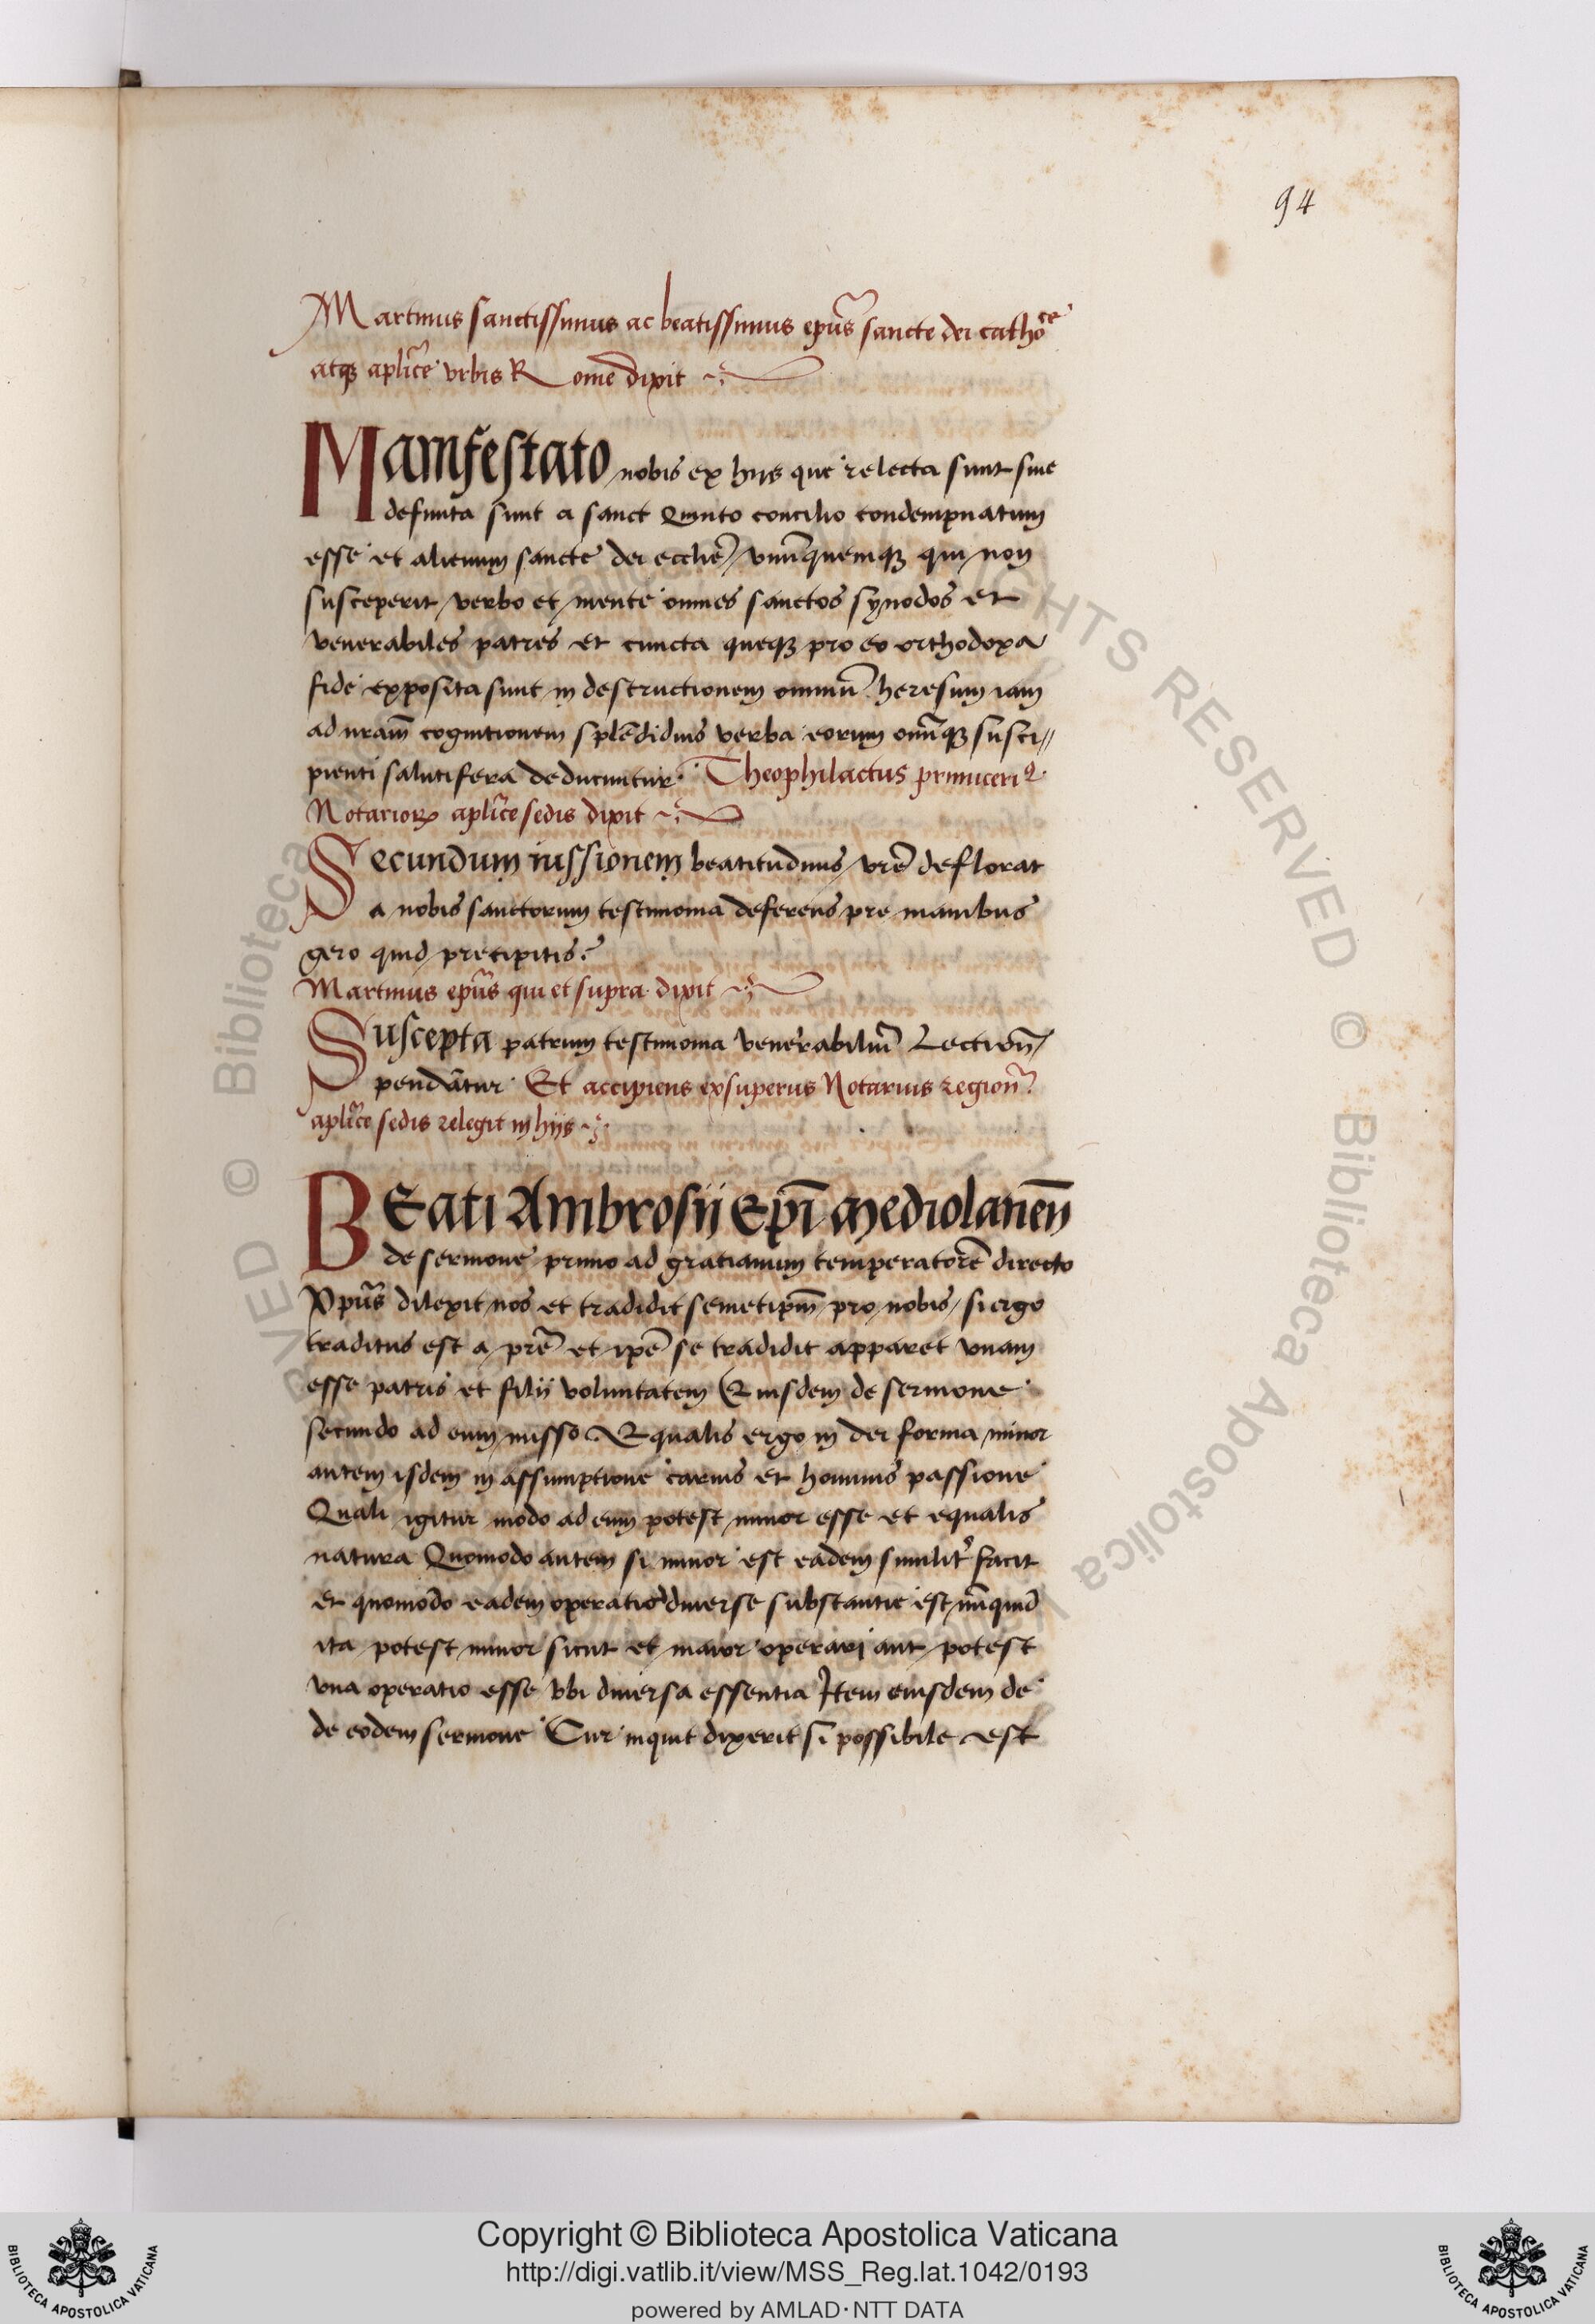 94
Martinus sanctissimus ac beatissimus ep̃us sancte dei cathoce
atqȝ apl̃ice vrbis Rome dixit
Manifestato nobis ex hijs que relecta sunt siue
definita sunt a sanct Quinto concilio condempnatum
esse et alienum sancte dei eccliē vnūquemqȝ qui non
susceperit verbo et mente omnes sanctos synodos et
venerabiles patres et cuncta queqȝ pro eo orthodoxa
fide exposita sunt in destructionem omniū heresum iam
ad nrām cognitionem splēdidius verba eorum omīqȝ susci//
pienti salutifera deducuntur. Theophilactus primiceriꝰ
Notarioꝝ apl̃ice sedis dixit
Secundum iussionem beatitudinis vrē deflorat
a nobis sanctorum testimonia deferens pre manibus
gero quid precipitis?
Martinus ep̃us qui et supra dixit
Suscepta patrum testimonia venerabiliū Lectioni
pendātur. Et accipiens exsuperus Notarius region̄
apl̃ice sedis relegit in hijs
BEati Ambrosij Ep̄i Mediolaneñ
de sermone primo ad gratianum temperatorē directo
Xpūs dilexit nos et tradidit semetip̄m pro nobis, si ergo
traditus est a prē et ip̄e se tradidit apparet vnam
esse patris et filij voluntatem Eiusdem de sermone
secundo ad eum misso Equalis ergo in dei forma minor
autem isdem in assumptione carnis et hominis passione
Quali igitur modo ad eum potest minor esse et equalis
natura Quomodo autem si minor est eadem similit̾ facit
et quomodo eadem operatio diuerse substantie est nūquid
ita potest minor sicut et maior operari aut potest
vna operatio esse vbi diuersa essentia Item eiusdem de
de eodem sermone Cur inquit dixerit si possibile est
Copyright © Biblioteca Apostolica Vaticana
http://digi.vatlib.it/view/MSS_Reg.lat.1042/0193
powered by AMLAD·NTT DATA
BIBLIOTECA APOSTOLICA VATICANA
BIBLIOTECA APOSTOLICA VATICANA